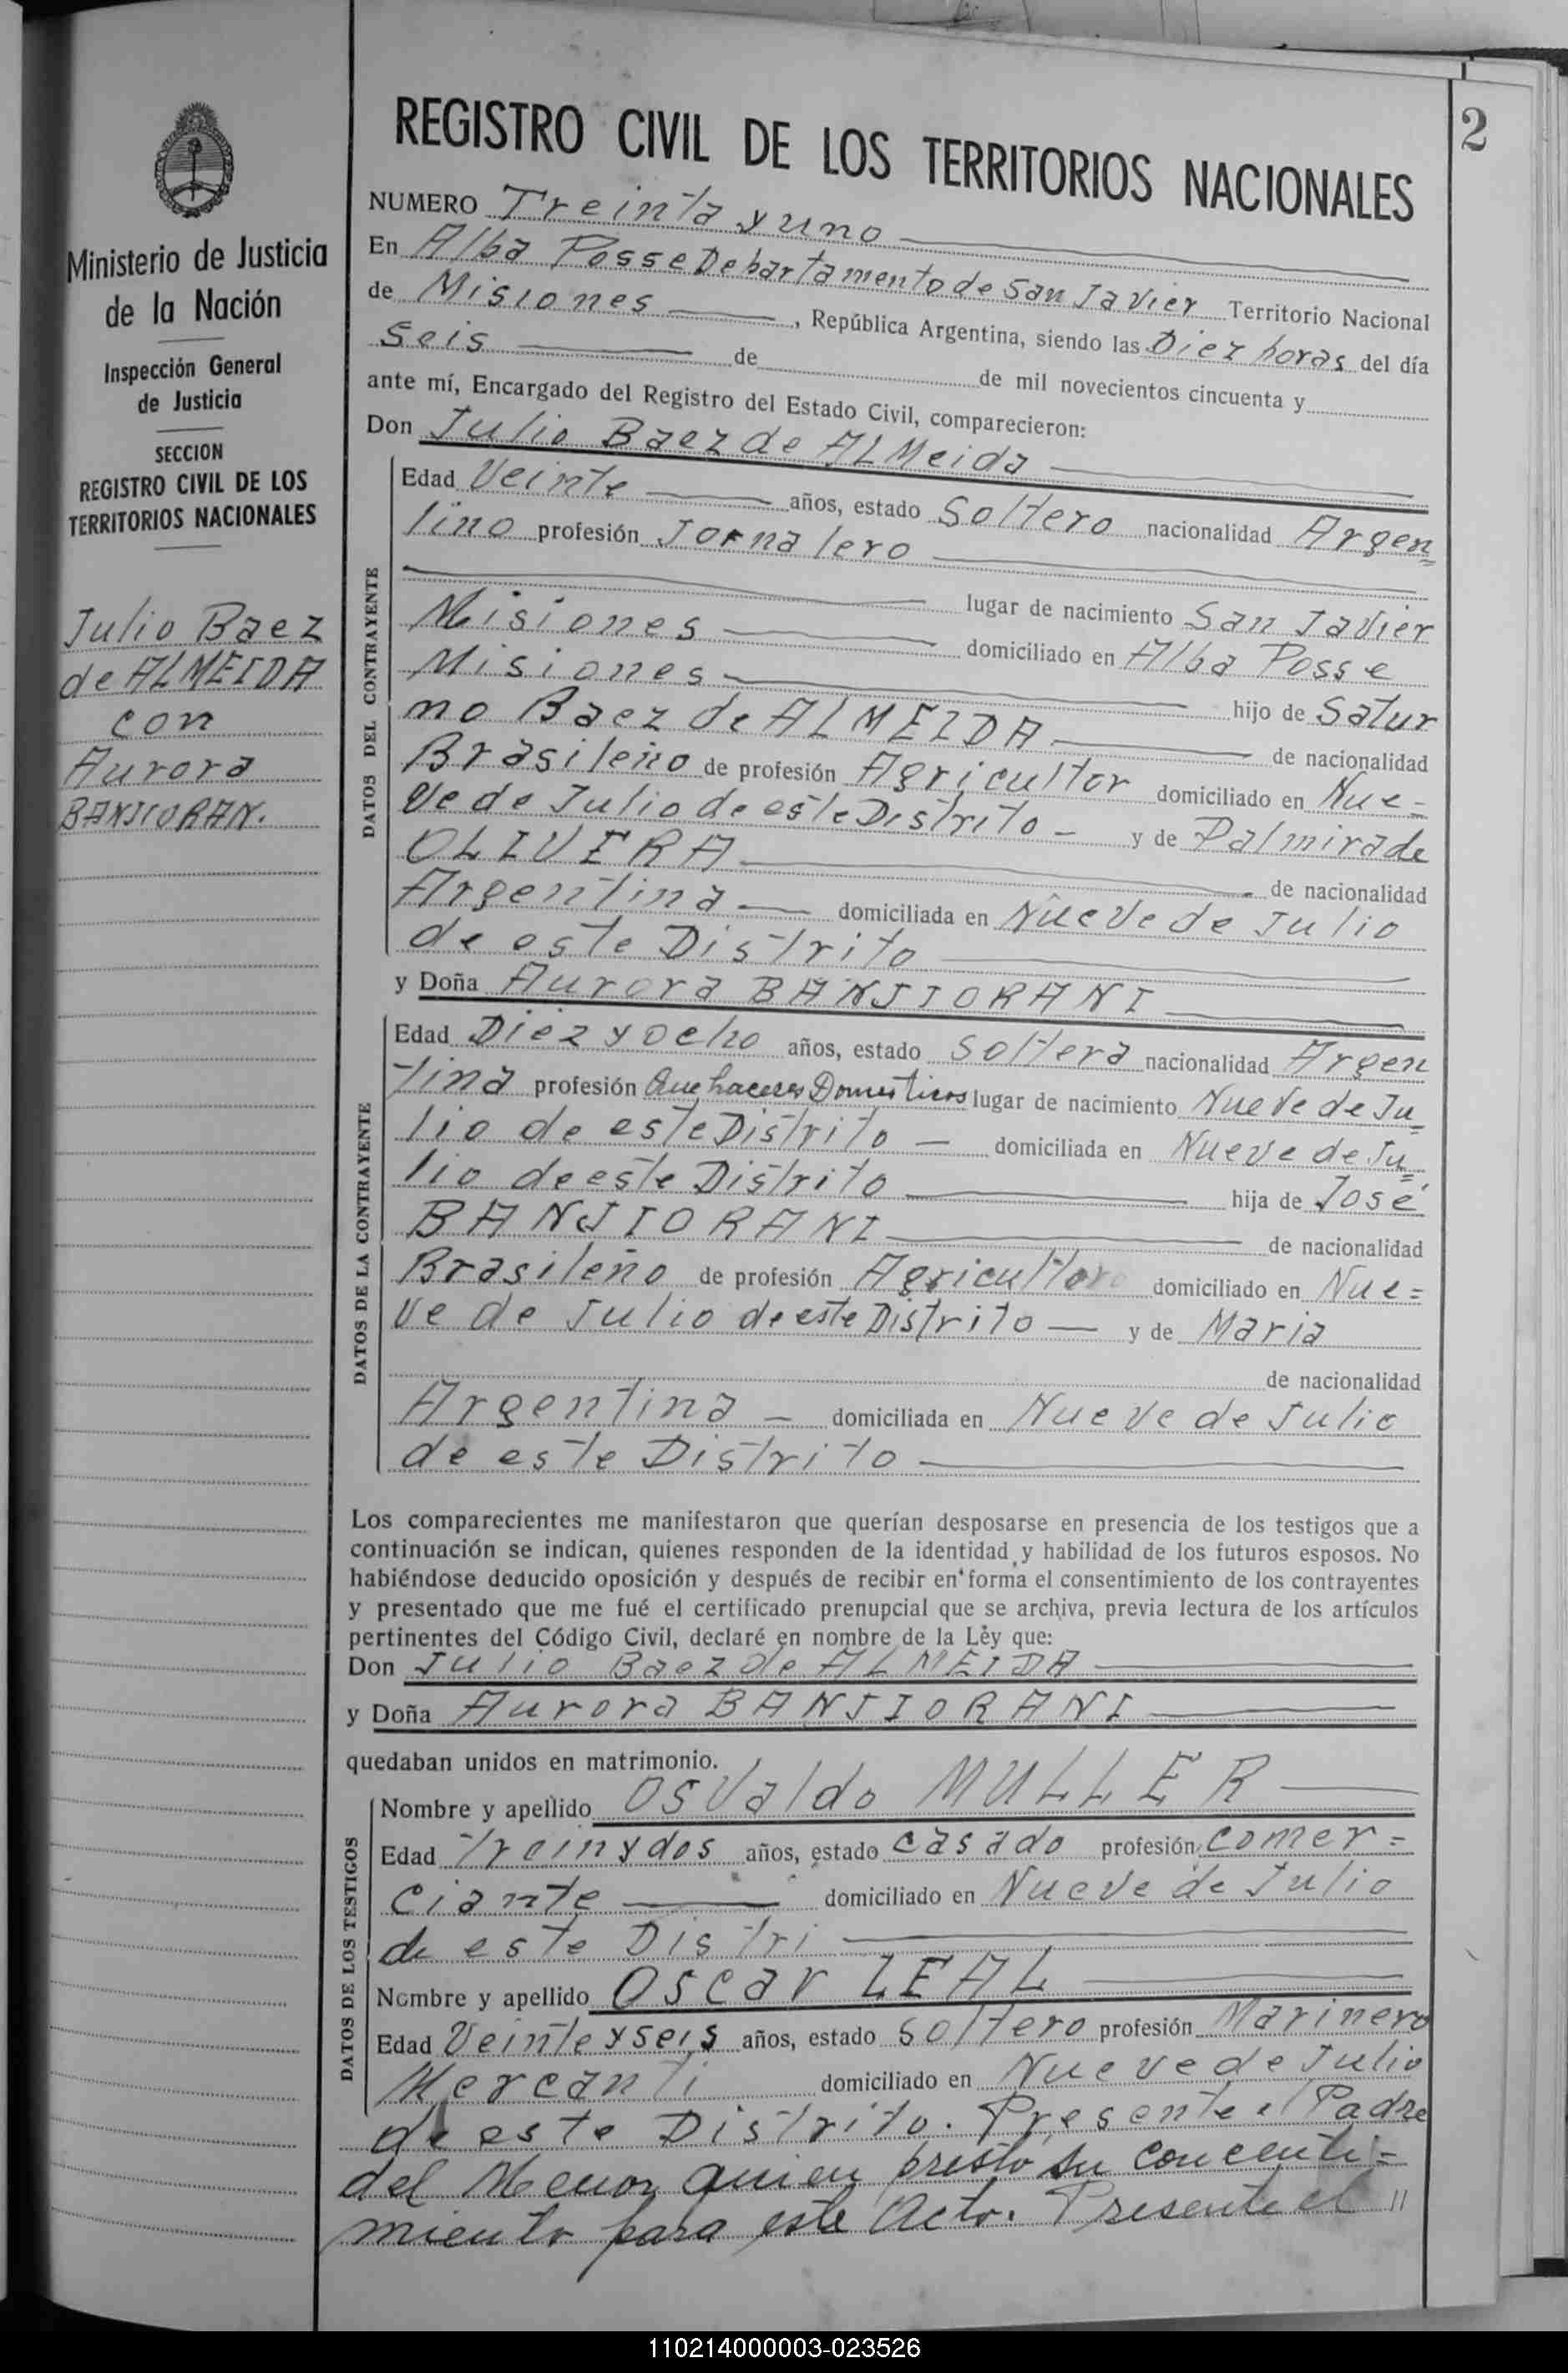 REGISTRO CIVIL DE LOS TERRITORIOS NACIONALES
2
Ministerio de Justicia
de la Nación
Inspección General
de Justicia
SECCION
REGISTRO CIVIL DE LOS
TERRITORIOS NACIONALES
Julio Baez
de ALMEIDA
con
Aurora
BANJIORAN.
NUMERO Treinta y uno
En Alba Posse Departamento de San Javier Territorio Nacional
de Misiones, República Argentina, siendo las Diez horas del día
Seis de de mil novecientos cincuenta y
ante mí, Encargado del Registro del Estado Civil, comparecieron:
Don Julio Baez de ALMeida
DATOS DEL CONTRAYENTE
Edad Veinte años, estado Soltero nacionalidad Argen=
tino profesión Jornalero
lugar de nacimiento San Javier
Misiones domiciliado en Alba Posse
Misiones hijo de Satur
no Baez de ALMEIDA de nacionalidad
Brasileño de profesión Agricultor domiciliado en Nue=
ve de Julio de este Distrito - y de Palmira de
OLIVERA de nacionalidad
Argentina domiciliada en Nueve de Julio
de este Distrito
y Doña Aurora BANJIORANI
DATOS DE LA CONTRAYENTE
Edad Diez y ocho años, estado Soltera nacionalidad Argen
tina profesión Quehaceres Domesticos lugar de nacimiento Nueve de Ju=
lio de este Distrito - domiciliada en Nueve de Ju=
lio de este Distrito hija de José
BANJIORANI de nacionalidad
Brasileño de profesión Agricultor domiciliado en Nue=
ve de Julio de este Distrito - y de Maria
de nacionalidad
Argentina - domiciliada en Nueve de Julio
de este Distrito
Los comparecientes me manifestaron que querían desposarse en presencia de los testigos que a
continuación se indican, quienes responden de la identidad y habilidad de los futuros esposos. No
habiéndose deducido oposición y después de recibir en forma el consentimiento de los contrayentes
y presentado que me fué el certificado prenupcial que se archiva, previa lectura de los artículos
pertinentes del Código Civil, declaré en nombre de la Ley que:
Don Julio Baez de ALMEIDA
y Doña Aurora BANJIORANI
quedaban unidos en matrimonio.
DATOS DE LOS TESTIGOS
Nombre y apellido OSValdo MULLER
Edad Treinydos años, estado casado profesión comer=
ciante domiciliado en Nueve de Julio
de este Distri
Nombre y apellido Oscar LEAL
Edad Veinteyseis años, estado soltero profesión Marinero
Mercanti domiciliado en Nueve de Julio
de este Distrito. Presente el Padre
del Menor quien presto su concenti=
miento para este Acto. Presente el //
110214000003-023526